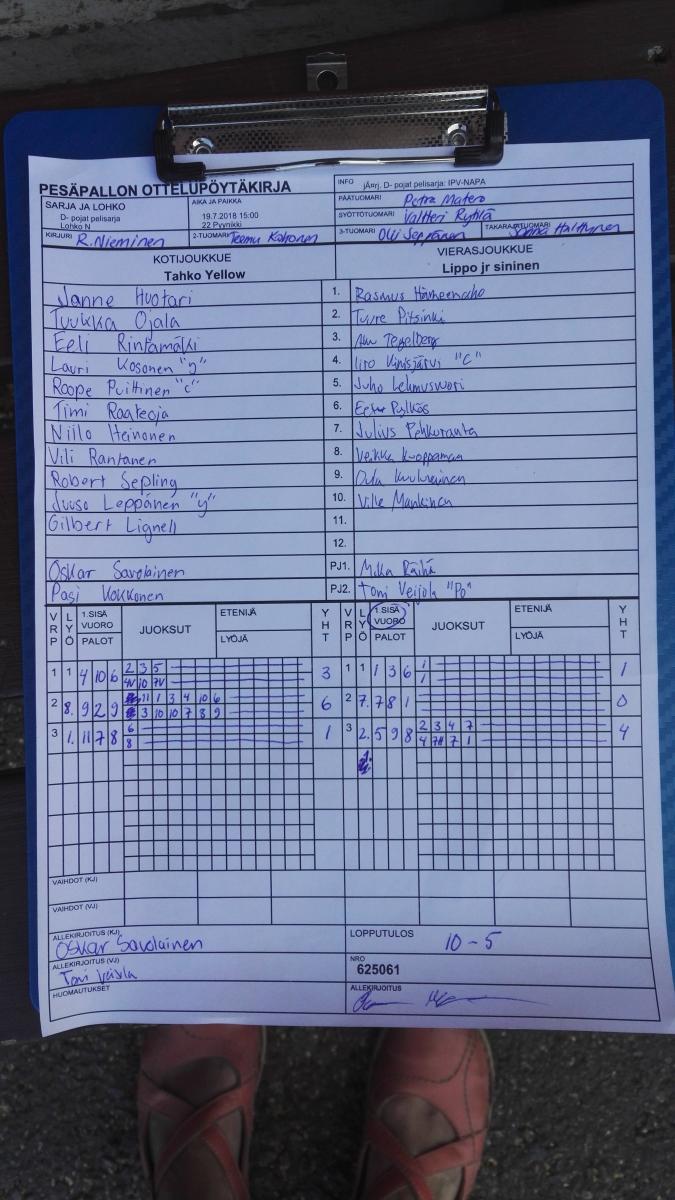 PESÄPALLON OTTELUPÖYTÄKIRJA
INFO Järrj, D- pojat pelisarja: IPV-NAPA
SARJA JA LOHKO
D- pojat pelisarja
Lohko N
AIKA JA PAIKKA
19.7.2018 15:00
22 Pyynikki
PÄÄTUOMARI Petra Matero
SYÖTTÖTUOMARI Valtteri
KIRJURI R. Nieminen
2-TUOMARI Teemu
3-TUOMARI Olli Seppänen
TAKARAJATUOMARI
KOTIJOUKKUE
Tahko Yellow
VIERASJOUKKUE
Lippo jr sininen
Janne Huotari 1. Rasmus
Tuukka Ojala 2. Tuure Pitsinki
Eeli Rintamäki 3. Tegelberg
Lauri Kosonen "y" 4. Iiro "C"
Roope Puittinen "c" 5. Juho
Timi Raateoja 6. Eetu Pylkäs
Niilo Heinonen 7. Julius Pehkuranta
Vili Rantanen 8. Veikka
Robert Sepling 9.
Juuso Leppänen "y" 10. Ville Mankinen
Gilbert Lignell 11.
12.
Oskar Savolainen PJ1. Mika Räihä
Pasi Kokkonen PJ2. Toni Veijola "Po"
VRP LYÖ 1.SISÄ VUORO PALOT JUOKSUT ETENIJÄ LYÖJÄ YHT VRP LYÖ 1.SISÄ VUORO PALOT JUOKSUT ETENIJÄ LYÖJÄ YHT
1 1 4 10 6 2 3 5 3 1 1 1 3 6 1 1
4V 10 7V 1
2 8. 9 2 9 11 1 3 4 10 6 6 2 7. 7 8 1 0
3 10 10 7 8 9
3 1. 11 7 8 6 1 3 2. 5 9 8 2 3 4 7 4
8 4 7 1
VAIHDOT (KJ)
VAIHDOT (VJ)
ALLEKIRJOITUS (KJ)
Oskar Savolainen
LOPPUTULOS 10-5
ALLEKIRJOITUS (VJ)
Toni Veijola
NRO
625061
HUOMAUTUKSET
ALLEKIRJOITUS